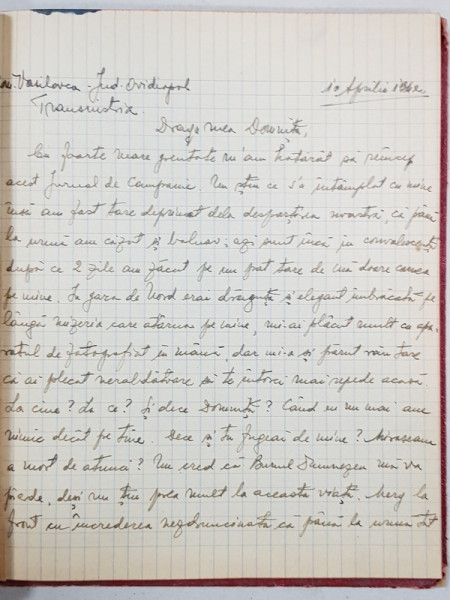 Vasilevca - Jud. Ovidiopol
Transnistria
10 Aprilie 1942.
Draga mea Domnița,
Cu foarte mare greutate m'am hotărât să reîncep
acest Jurnal de Campanie. Nu știu ce s'a întâmplat cu mine
însă am fost tare deprimat dela despărțirea noastră, că până
la urmă am căzut și bolnav; azi sunt încă in convalescență
după ce 2 zile am zăcut pe un pat tare de mă doare carnea
pe mine. In gara de Nord erai drăguță și elegant îmbrăcată pe
lângă mizeria care atârna pe mine, mi-ai plăcut mult cu apa-
ratul de fotografiat in mână, dar mi-a și părut rău tare
că ai plecat nerăbdătoare să te întorci mai repede acasă.
La cine? La ce? Și dece Domniță? Când eu nu mai am
nimic decât pe tine. Dece și tu fugeai de mine? Miroseam
a mort de atunci? Nu cred că Bunul Dumnezeu mă va
pierde, deși nu țin prea mult la aceasta viață. Merg la
front cu încrederea că până la urma tot